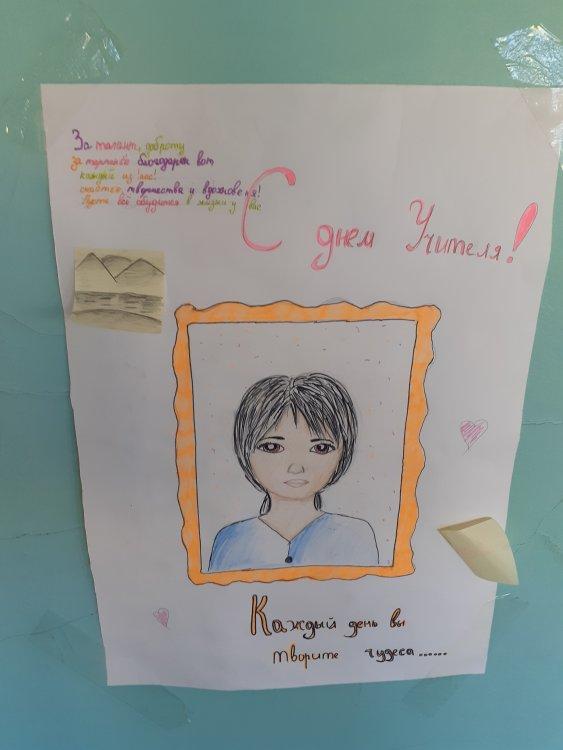 За талант, доброту
за терпенье благодарен вот
каждый из нас!
счастья, творчества и вдохновения!
Пусть всё сбудется в жизни у вас
С днем Учителя!
Каждый день вы
творите чудеса......